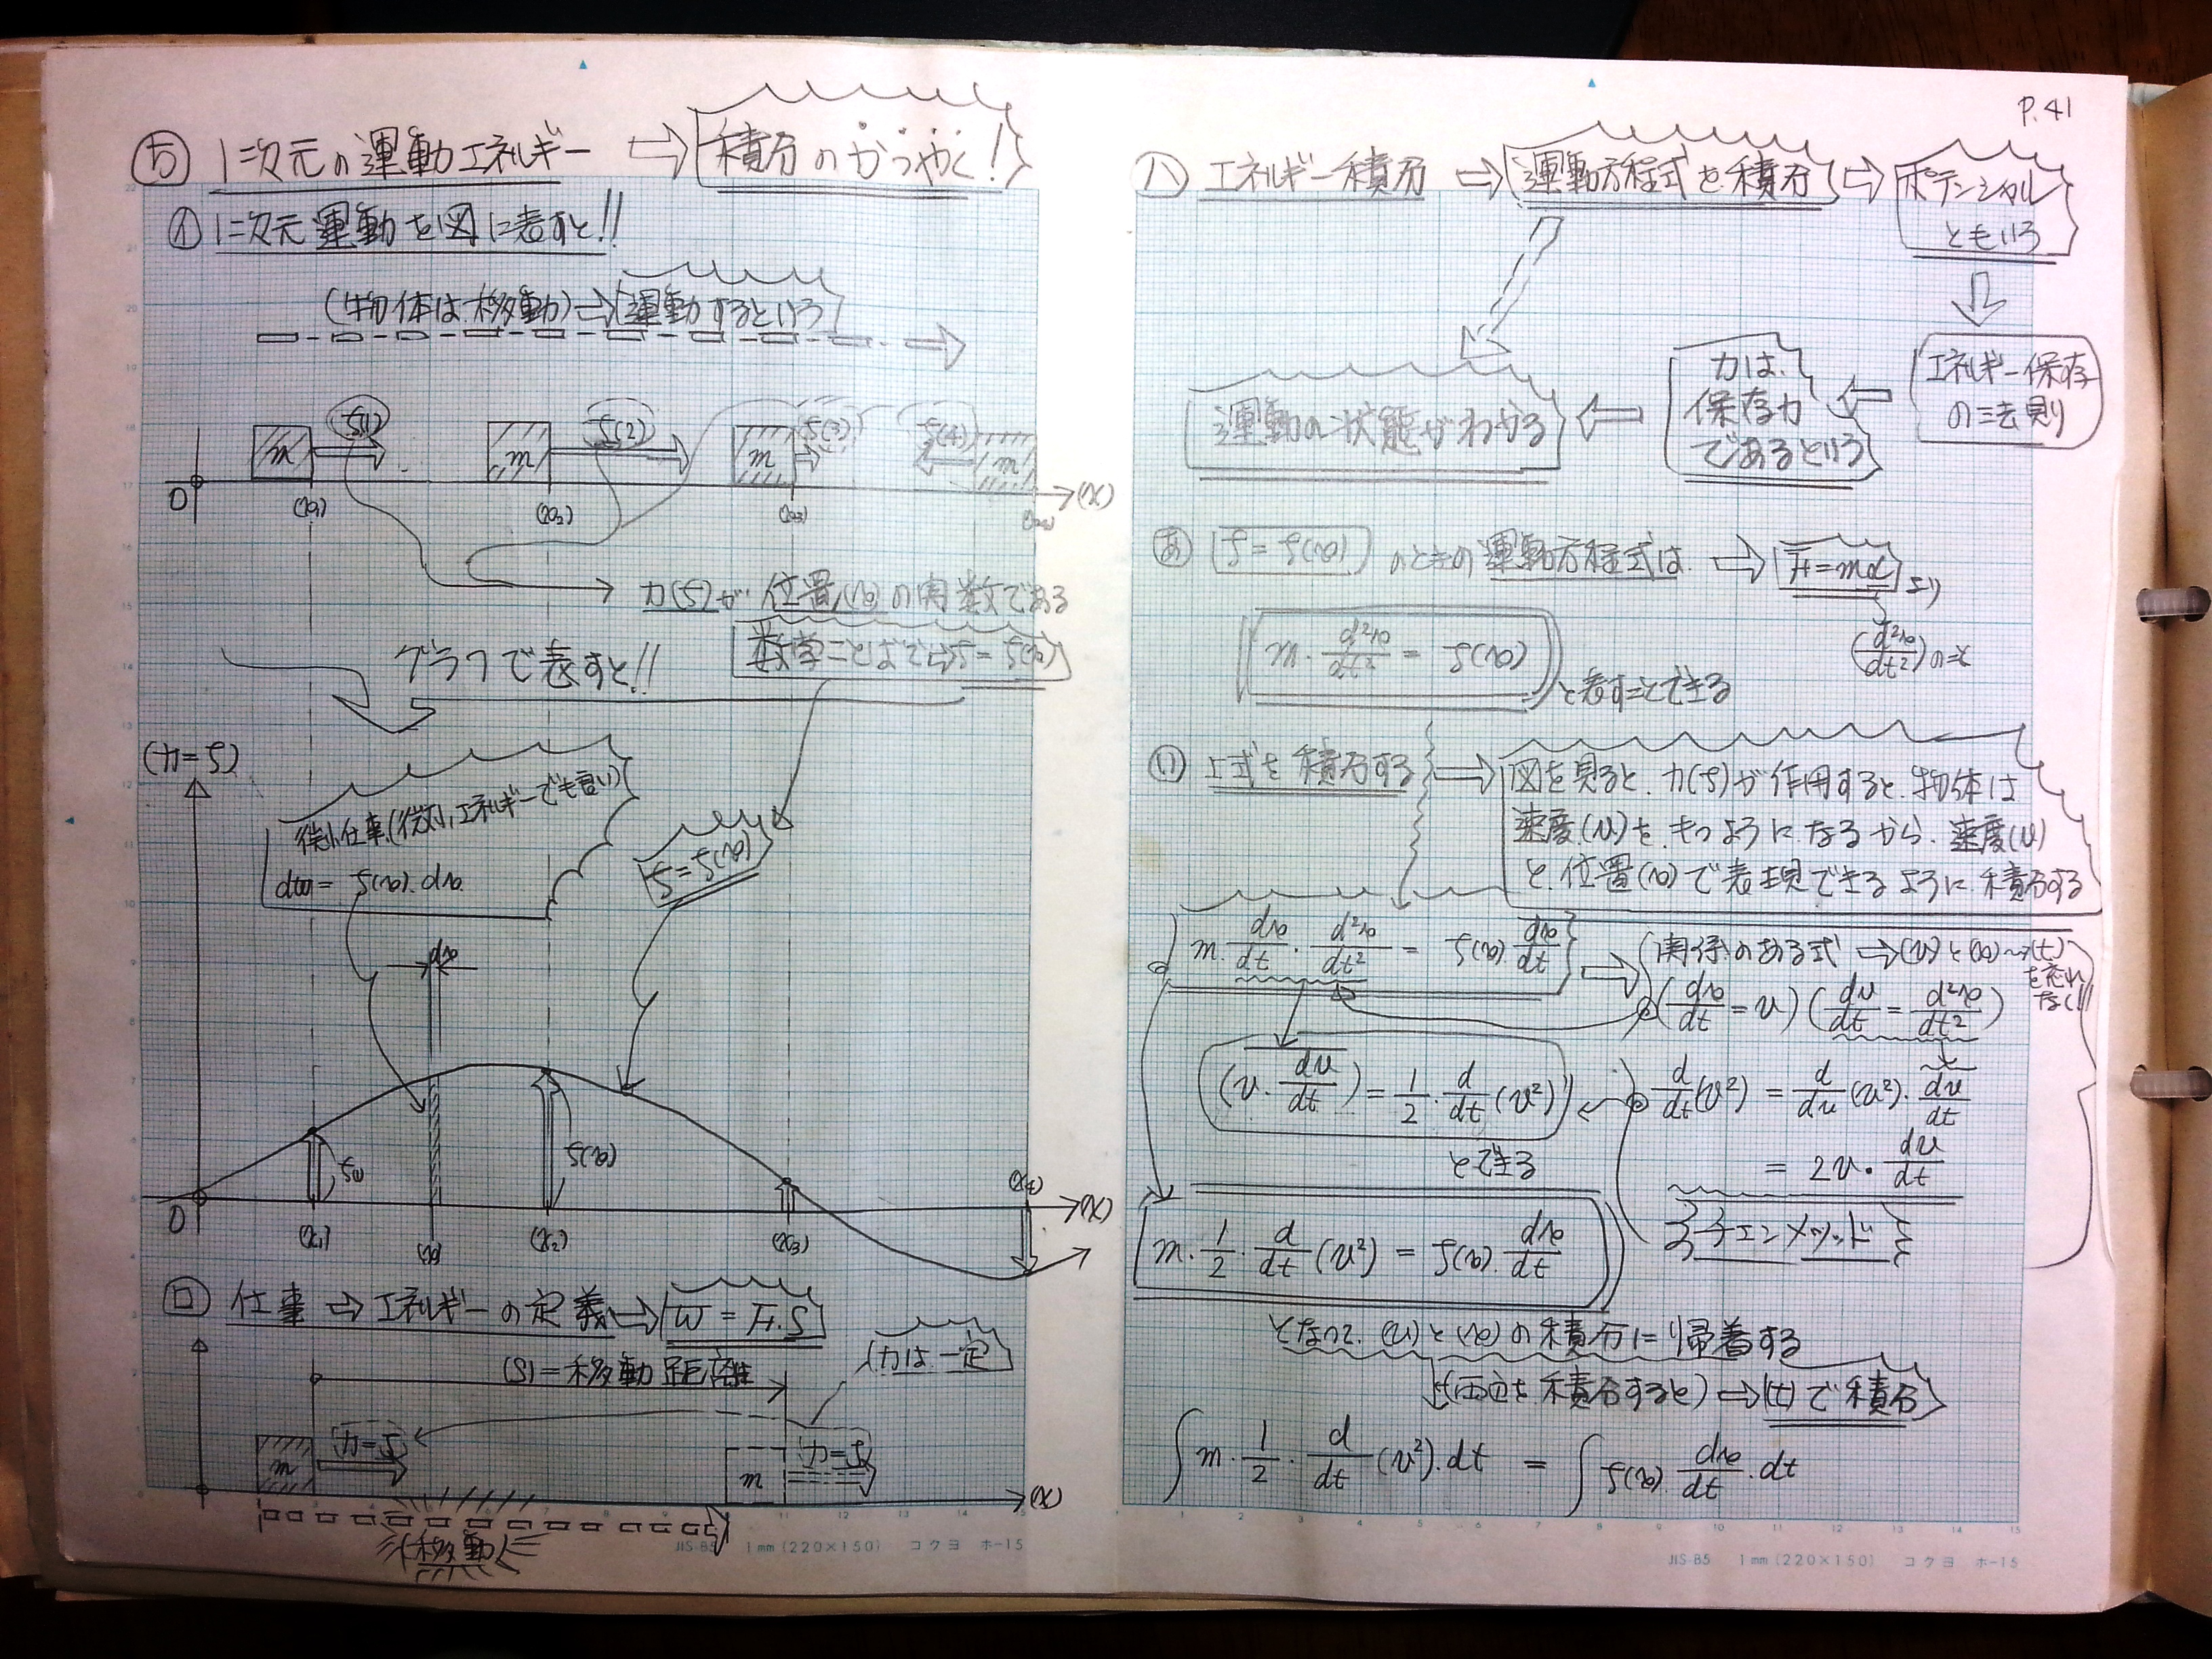 ち 1次元の運動エネルギー ⇨ 積分のかつやく!
イ 1次元運動を図に表すと!!
(物体は移動) ⇨ 運動するという
f(1) f(2) f(3) f(4)
m m m m
0 (x1) (x2) (x3) (x4) (x)
力(f)が位置(x)の関数である
数学ことばでは f = f(x)
グラフで表すと!!
(力=f)
微小仕事(微小エネルギーでも良い)
dw = f(x)・dx
f = f(x)
dx
f(x)
0 (x1) (x) (x2) (x3) (x4) (x)
ロ 仕事 ⇨ エネルギーの定義 ⇨ W = F.S
(力は一定)
(S)=移動距離
(力=f) (力=f)
m m
(x)
移動
JIS-B5 1mm (220×150) コクヨ ホ-15
P.41
ハ エネルギー積分 ⇨ 運動方程式を積分 ⇨ ポテンシャルともいう
エネルギー保存の法則
力は保存力であるという
運動の状態がわかる
あ f = f(x) のときの運動方程式は ⇨ F = mα より
(d²x/dt²)のこと
m・d²x/dt² = f(x)
と表すことできる
い 上式を積分する ⇨ 図を見ると、力(f)が作用すると、物体は
速度(v)をもつようになるから、速度(v)
と、位置(x)で表現できるように積分する
m・dx/dt・d²x/dt² = f(x)・dx/dt
関係のある式 ⇨ (v)と(x)~(t)を忘れなく!!
(dx/dt = v) (dv/dt = d²x/dt²)
(v・dv/dt) = 1/2・d/dt(v²)
とできる
d/dt(v²) = d/dv(v²)・dv/dt
= 2v・dv/dt
チェンメソッド
m・1/2・d/dt(v²) = f(x)・dx/dt
となって、(v)と(x)の積分に帰着する
(両辺を積分すると) ⇨ (t)で積分
∫m・1/2・d/dt(v²)・dt = ∫f(x)・dx/dt・dt
JIS-B5 1mm (220×150) コクヨ ホ-15